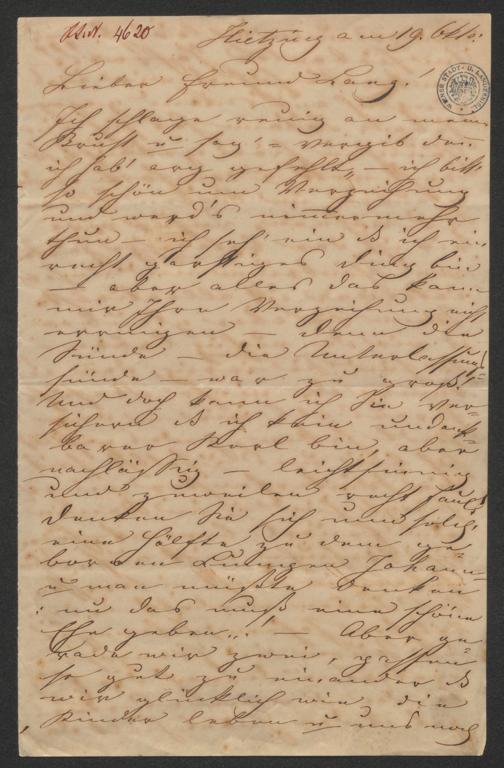 I.N. 4620
Hietzing am 19. Okto:
Lieber Freund Lang!
Ich schlage reuig an meine
Brust u sag' – vergib dei
ich hab' arg gefehlt, – ich bitt'
so schön um Verzeihung
und werd's nimmermehr
thun – ich seh' ein ß ich ein
recht garstiges Ding bin
– aber alles das kann
mir Ihre Verzeihung nicht
erringen – denn die
Sünde – die Unterlassungs
sünde – war zu groß.
Und doch kann ich Sie ver-
sichern ß ich kein undank-
barer Kerl bin, aber
nachlässig – leichtsinnig
und zuweilen recht faul.
Denken Sie sich nun solch'
eine Hälfte zu dem ge-
borenen Lumpen Johann
u man müßte denken
: nu das muß eine schöne
Ehe geben.: – Aber ge-
rade wir zwei, passen
so gut zu einander ß
wir glücklich wie die
Kinder leben u uns noch
WIENER STADT- U. LANDESBIBL.